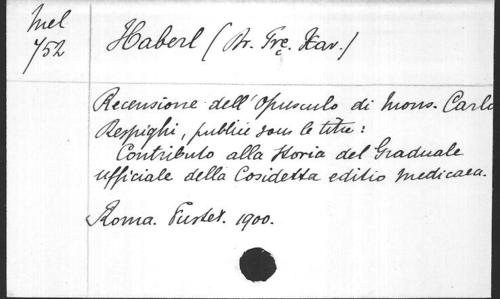 Mel
752
Haberl (Dr. Frç. Xav.)
Recensione dell'Opusculo di Mons. Carlo
Respighi, publié sous le titre:
Contributo alla Storia del Graduale
ufficiale della Cosidetta editio medicaea.
Roma. Pustet. 1900.